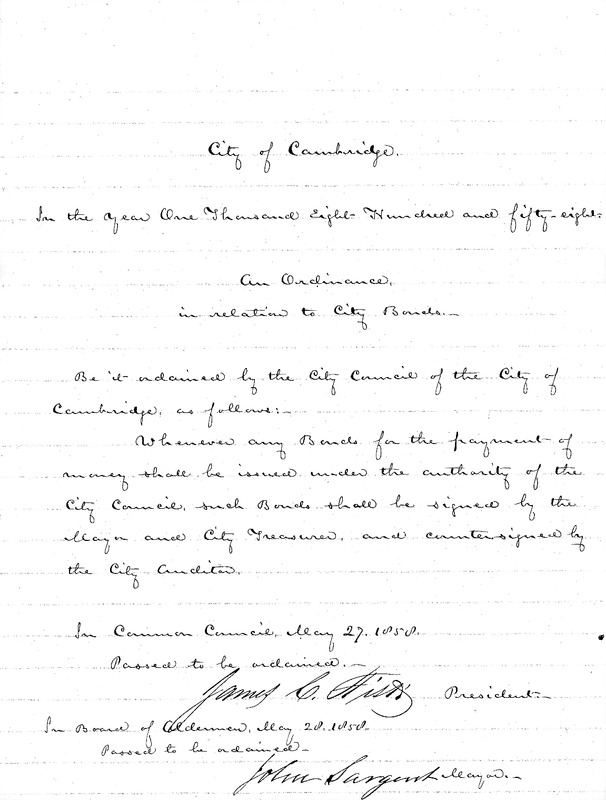 City of Cambridge.
In the year One Thousand Eight Hundred and fifty-eight.
An Ordinance,
in relation to City Bonds.—
Be it ordained by the City Council of the City of
Cambridge, as follows:—
Whenever any Bonds for the payment of
money shall be issued under the authority of the
City Council, such Bonds shall be signed by the
Mayor and City Treasurer, and countersigned by
the City Auditor.
In Common Council, May 27. 1858.
Passed to be ordained.—
James C. President.—
In Board of Aldermen, May 28. 1858.
Passed to be ordained—
John Sargent Mayor.—